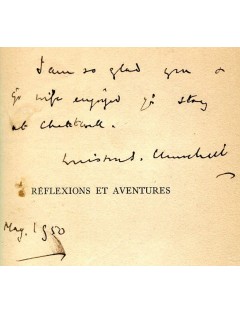 I am so glad you &
yr wife enjoyed yr stay
at Chartwell.
Winston S. Churchill
RÉFLEXIONS ET AVENTURES
May. 1950